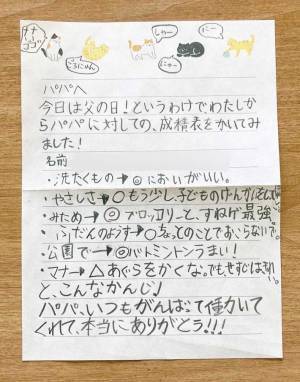 ゴロにゃん
しゃー
にゃー
にー
パパへ
今日は父の日!というわけでわたしか
らパパに対しての、成精表をかいてみ
ました!
名前
・洗たくもの→◎においがいい。
・やさしさ→○もう少し、子どものけんか
・みため→◎ブロッコリーと、すねゲ最強。
・ふだんのようす→○ちょっとのことでおこらないで。
・公園で→◎バトミントンうまい!
・マナー→△あぐらをかくな。でも、せすじは
と、こんなかんじ♩
パパ、いつもがんばって働いて
くれて、本当にありがとう!!!